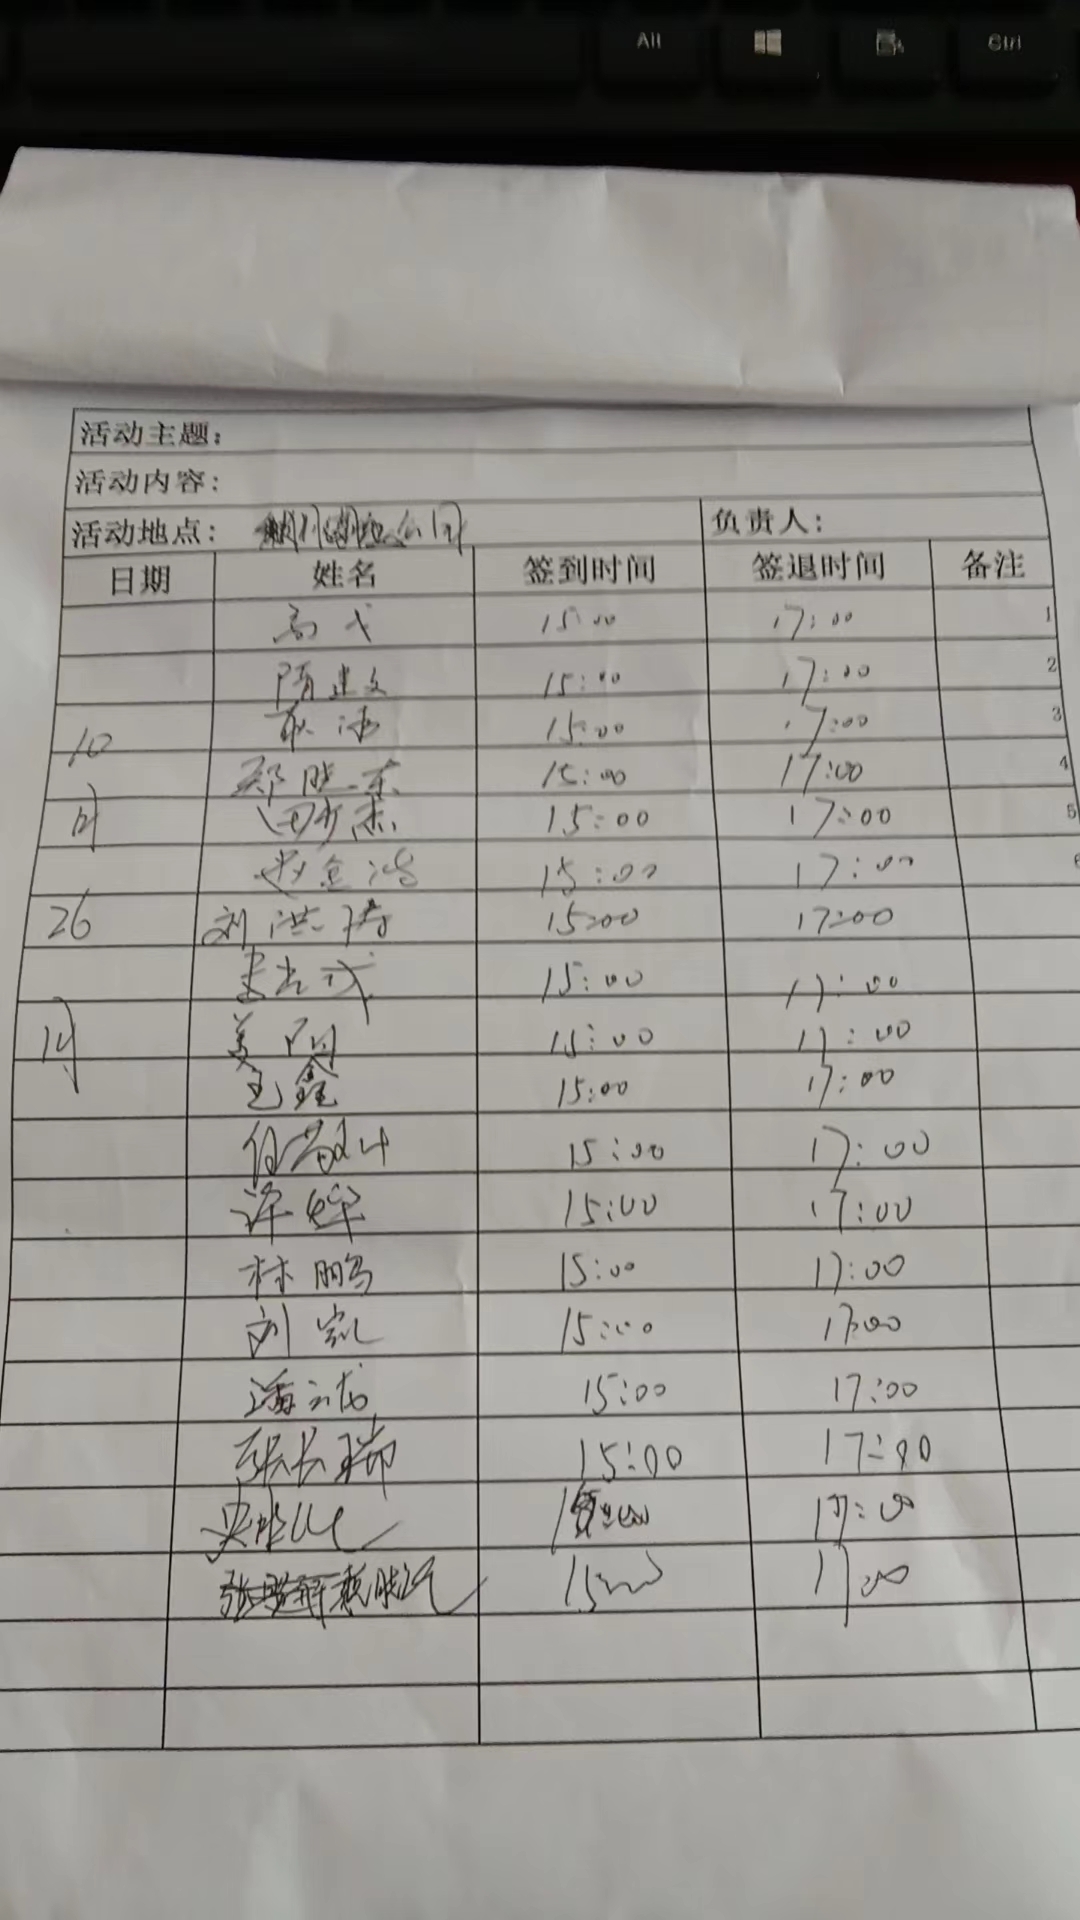 Alt
Ctrl
活动主题：
活动内容：
活动地点：
负责人：
日期 姓名 签到时间 签退时间 备注
高戈 15:00 17:00 1
隋建文 15:00 17:00 2
10 耿涛 15:00 17:00 3
郑胜东 15:00 17:00 4
月 田 杰 15:00 17:00 5
赵金鸿 15:00 17:00 6
26 刘洪涛 15:00 17:00
15:00 17:00
日 姜阳 15:00 17:00
王鑫 15:00 17:00
15:00 17:00
许烨 15:00 17:00
林鹏 15:00 17:00
刘凯 15:00 17:00
潘 15:00 17:00
张长瑞 15:00 17:00
17:00
张 15:00 17:00